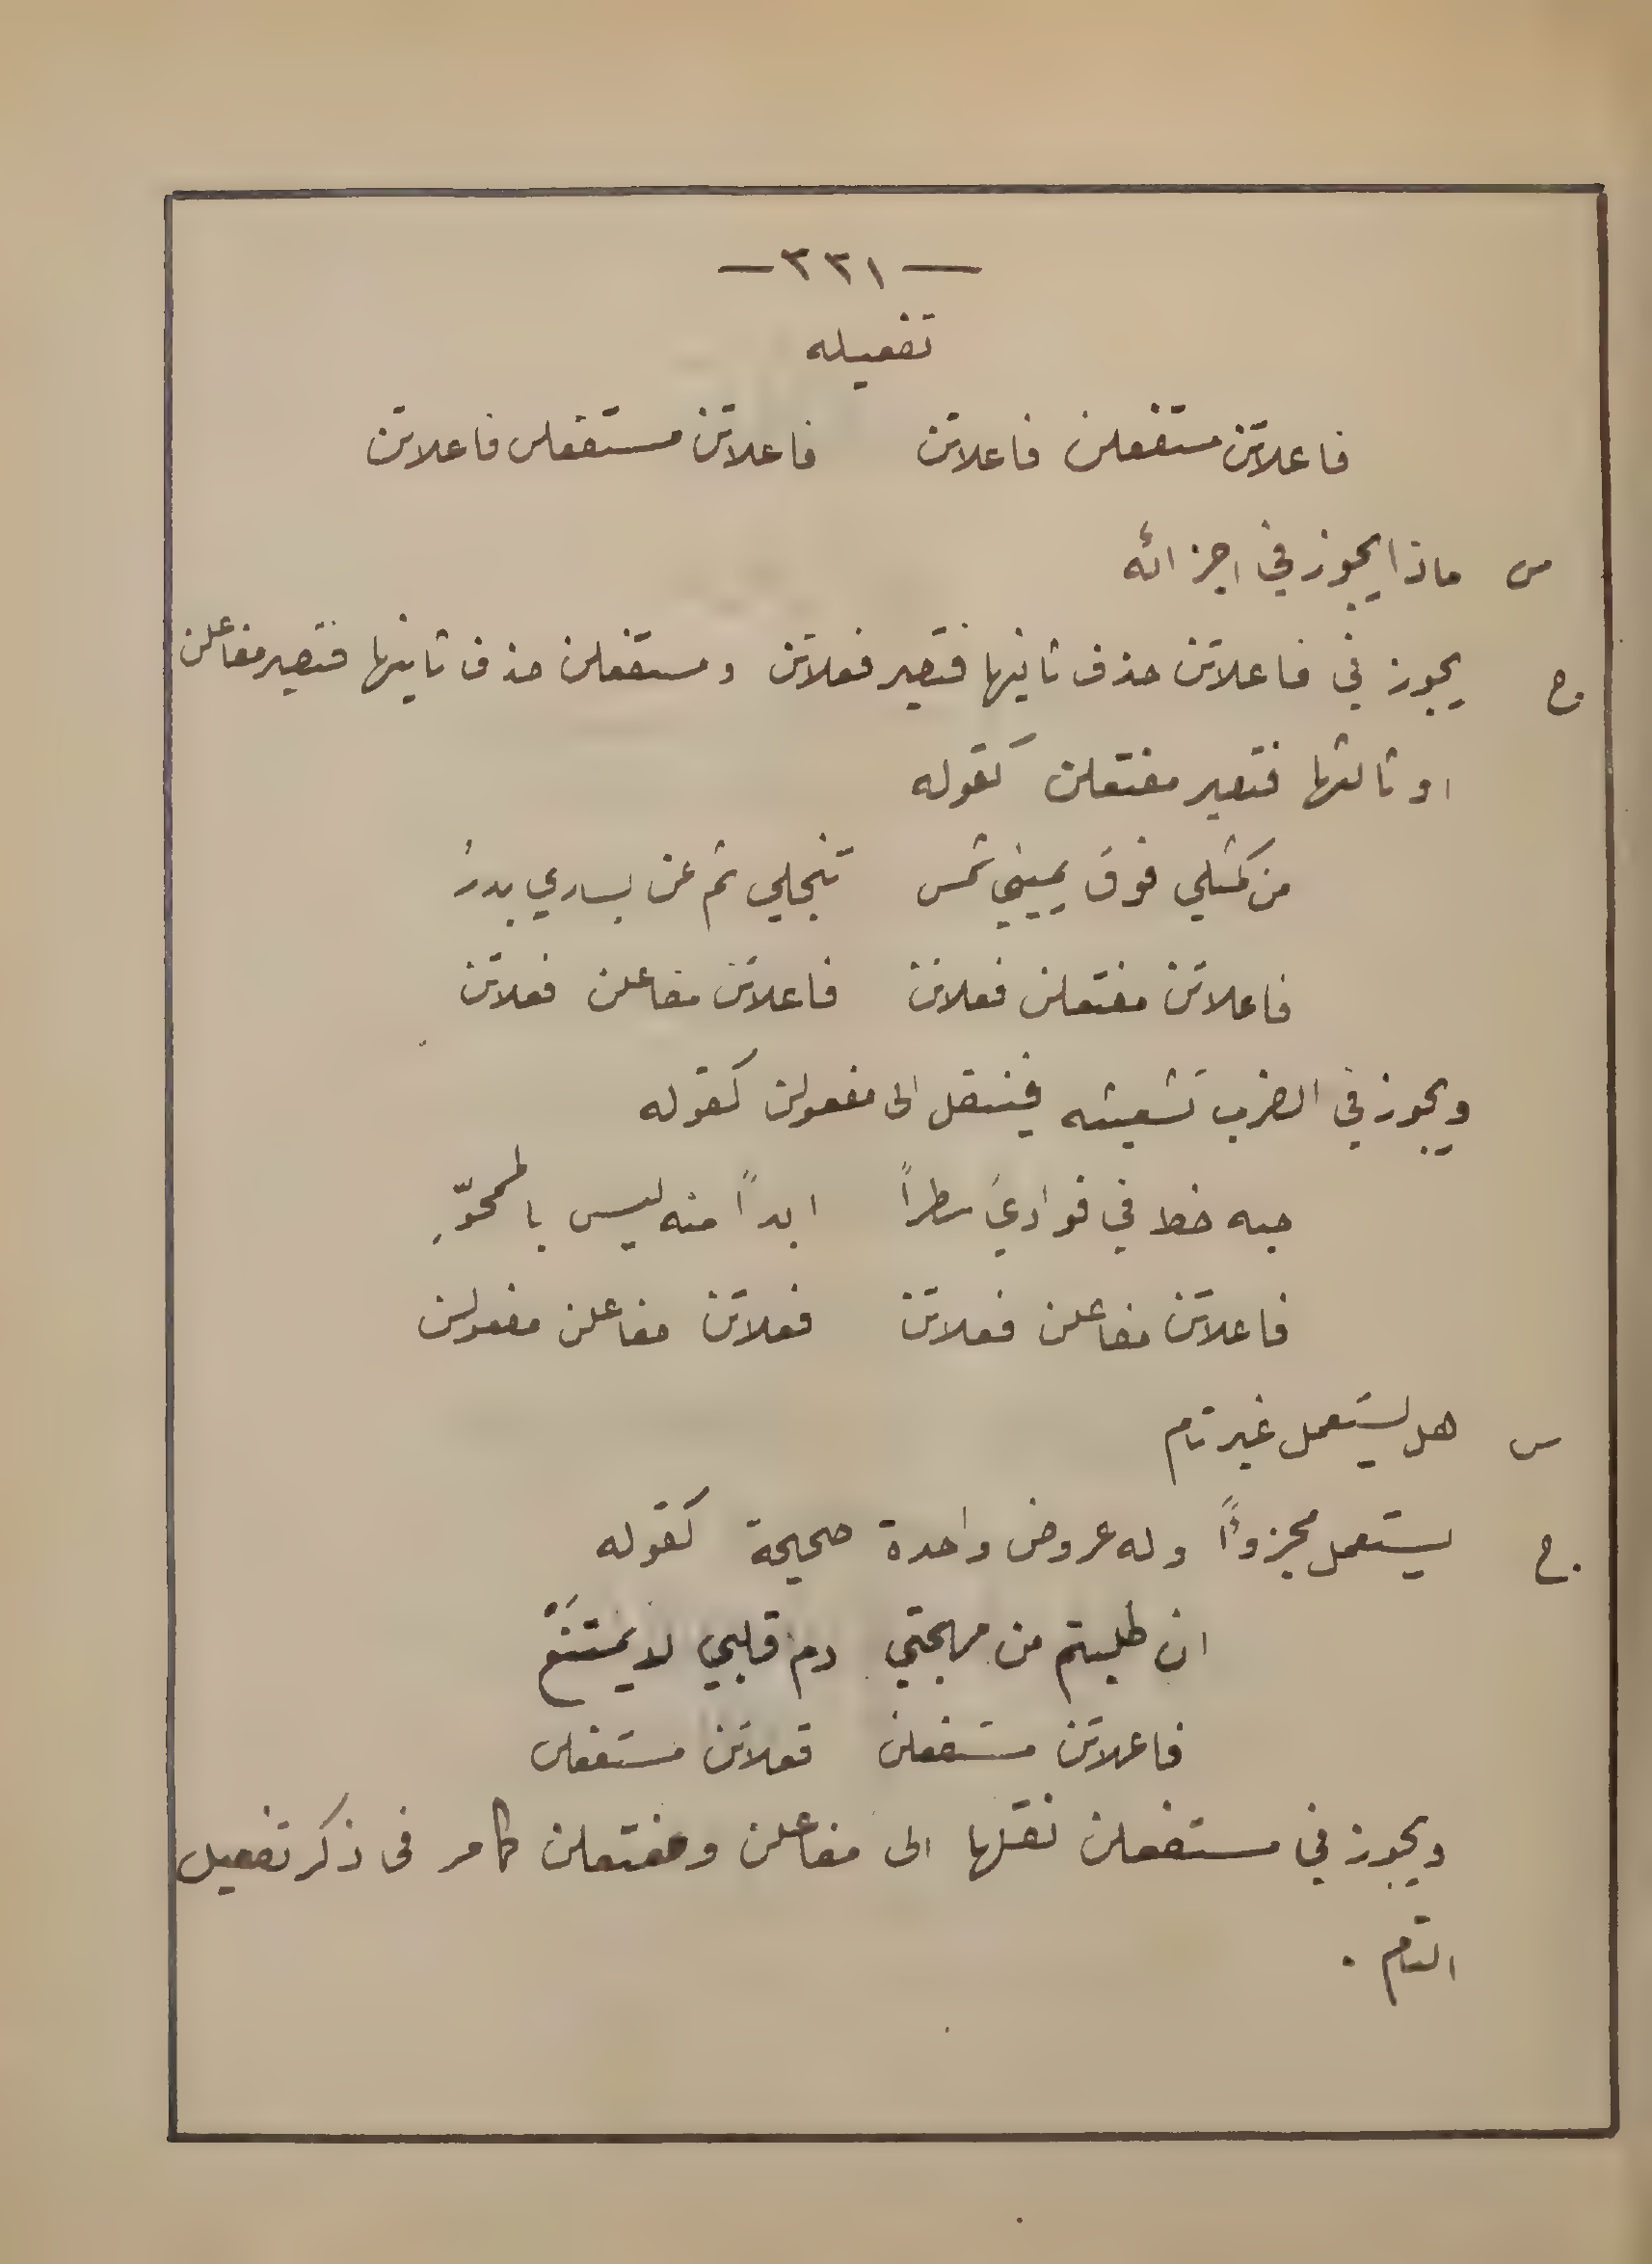 — ٣٣١ —
تفعيله
فاعلاتن مستفعلن فاعلاتن فاعلاتن مستفعلن فاعلاتن
س ماذا يجوز في اجزائه
ج يجوز في فاعلاتن حذف ثانيها فتصير فعلاتن ومستفعلن حذف ثانيها فتصير مفاعلن
او ثالثها فتصير مفتعلن كقوله
من كمثلي فوقَ يميني شمس تنجلي ثم عن يساري بدرُ
فاعلاتن مفتعلن فعلاتن فاعلاتن مفاعلن فعلاتن
ويجوز في الضرب تشعيثه فينتقل الى مفعولن كقوله
حبه خط في فوادي سطراً ابداً منه ليس بالمحوِّ
فاعلاتن مفاعلن فعلاتن فعلاتن مفاعلن مفعولن
س هل يستعمل غير تام
ج يستعمل مجزوءًا وله عروض واحدة صحيحة كقوله
ان طلبتم من مهجتي دم قلبي لا يمتنَعْ
فاعلاتن مستفعلن فعلاتن مستفعلن
ويجوز في مستفعلن نقلها الى مفاعلن ومفتعلن كما مر في ذكر تفعيل
التام .